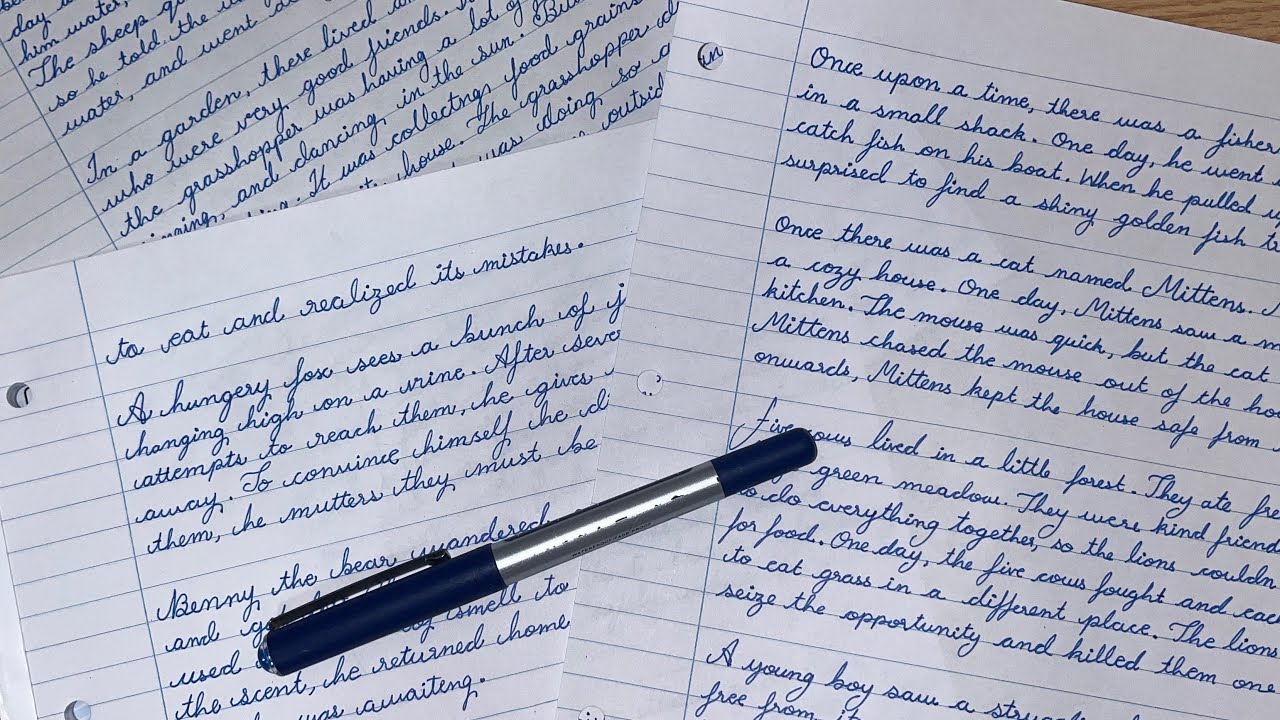 day
him water,
The sheep
so he told the
water, and went
In a garden, there lived
who were very good friends.
the grasshopper was having a lot of
and dancing in the sun.
It was collectngs food grains
house. The grasshopper
was doing so
outsid
to eat and realized its mistakes.
A hungery fox sees a bunch of
hanging high on a vine. After seve
attempts to reach them, he gives
away. To convince himself he di
them, he mutters they must be
Benny the bear wandered
and
used smell to
the scent, he returned home
was awaiteng.
in
Once upon a time, there was a fisher
in a small shack. One day, he went
catch fish on his boat. When he pulled
surprised to find a shiny golden fish
Once there was a cat named Mittens.
a cozy house. One day, Mittens saw a m
kitchen. The mouse was quick, but the cat
Mittens chased the mouse out of the ho
onwards, Mittens kept the house safe from
Five cows lived in a little forest. They ate fre
green meadow. They were kind friend
to do everything together, so the lions couldn
for food. One day, the five cows fought and eac
to eat grass in a different place. The lions
seize the opportunity and killed them one
A young boy saw a
free from